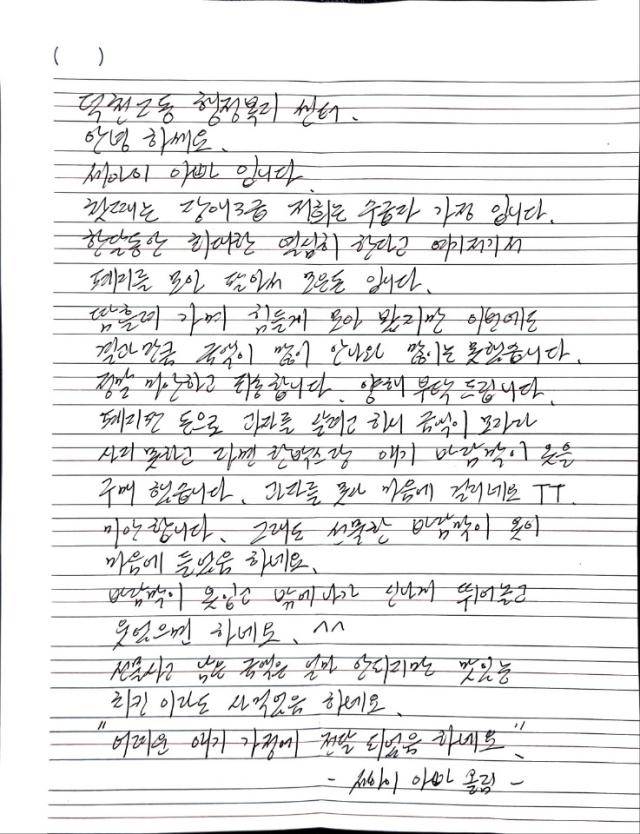 ( )
덕천2동 행정복리 쎈터.
안녕 하쎄요.
쎄아이 아빠 입니다.
첫째는 장애3급 저희는 수급자 가정 입니다.
한달동안 최대한 열심히 한다고 여기저기서
폐지를 모아 팔아서 모은돈 입니다.
땀흘려 가며 힘들게 모아 봤지만 이번에도
결과만큼 금액이 많이 안나와 많이는 못했습니다.
정말 미안하고 죄송합니다. 양해 부탁 드립니다.
폐지판 돈으로 과자를 살려고 하니 금액이 모자라
사지 못하고 라면 한박스랑 애기 바람막이 옷을
구매 했습니다. 과자를 못사 마음에 걸리네요 TT.
미안합니다. 그래도 선물한 바람막이 옷이
마음에 들었음 하네요.
바람막이 옷입고 밖에나가 신나게 뛰어놀고
웃었으면 하네요. ^^
선물사고 남은 금액은 얼마 안되지만 맛있는
치킨 이라도 사먹었음 하네요.
"어려운 애기 가정에 전달 되었음 하네요".
- 쎄아이 아빠 올림 -